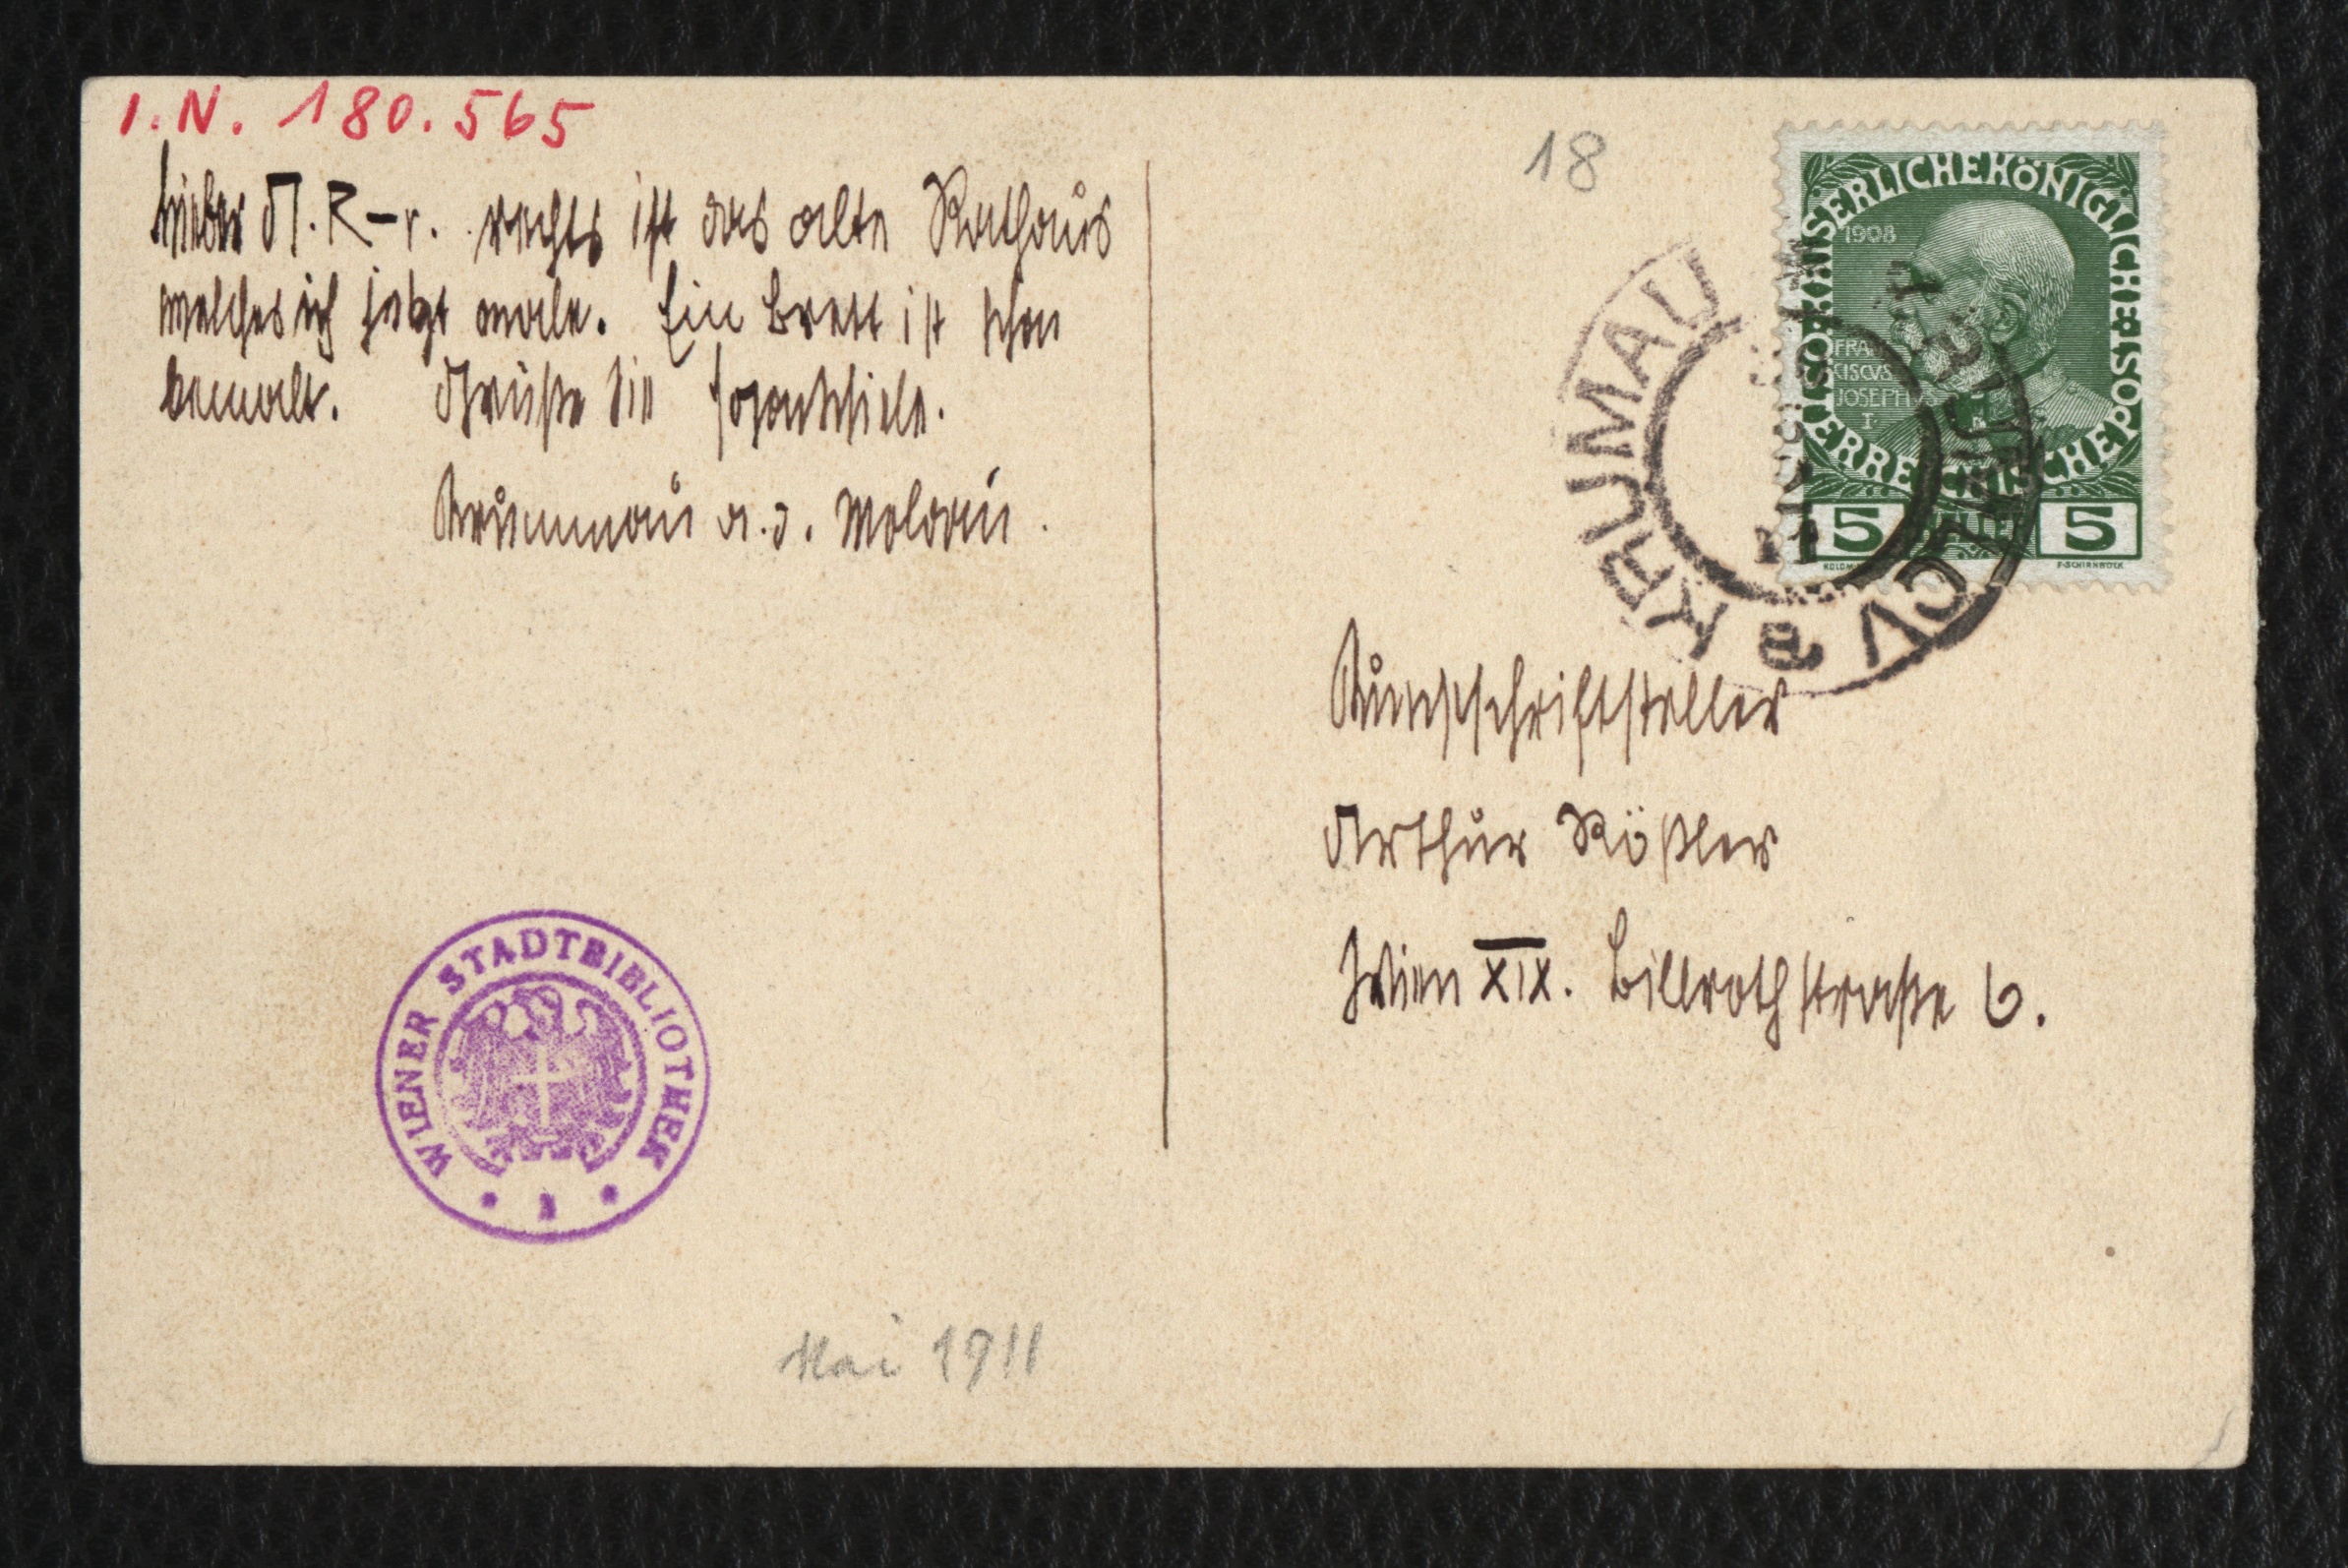 I.N. 180.565
18
Lieber A. R–r. rechts ist das alte Rathaus
welches ich jetzt male. Ein Brett ist schon
bemalt. Grüße Sie Egon Schiele.
Krummau a. d. Moldau.
KAISERLICHE KÖNIGLICHE ÖSTERREICHISCHE POST
1908
FRANCISCVS JOSEPHVS I.
5 HELLER 5
F·SCHIRNBÖCK
KRUMAU
a
KRUMLOV
Kunstschriftsteller
Arthur Rößler
Wien XIX. Billrothstraße 6.
WIENER STADTBIBLIOTHEK
Mai 1911